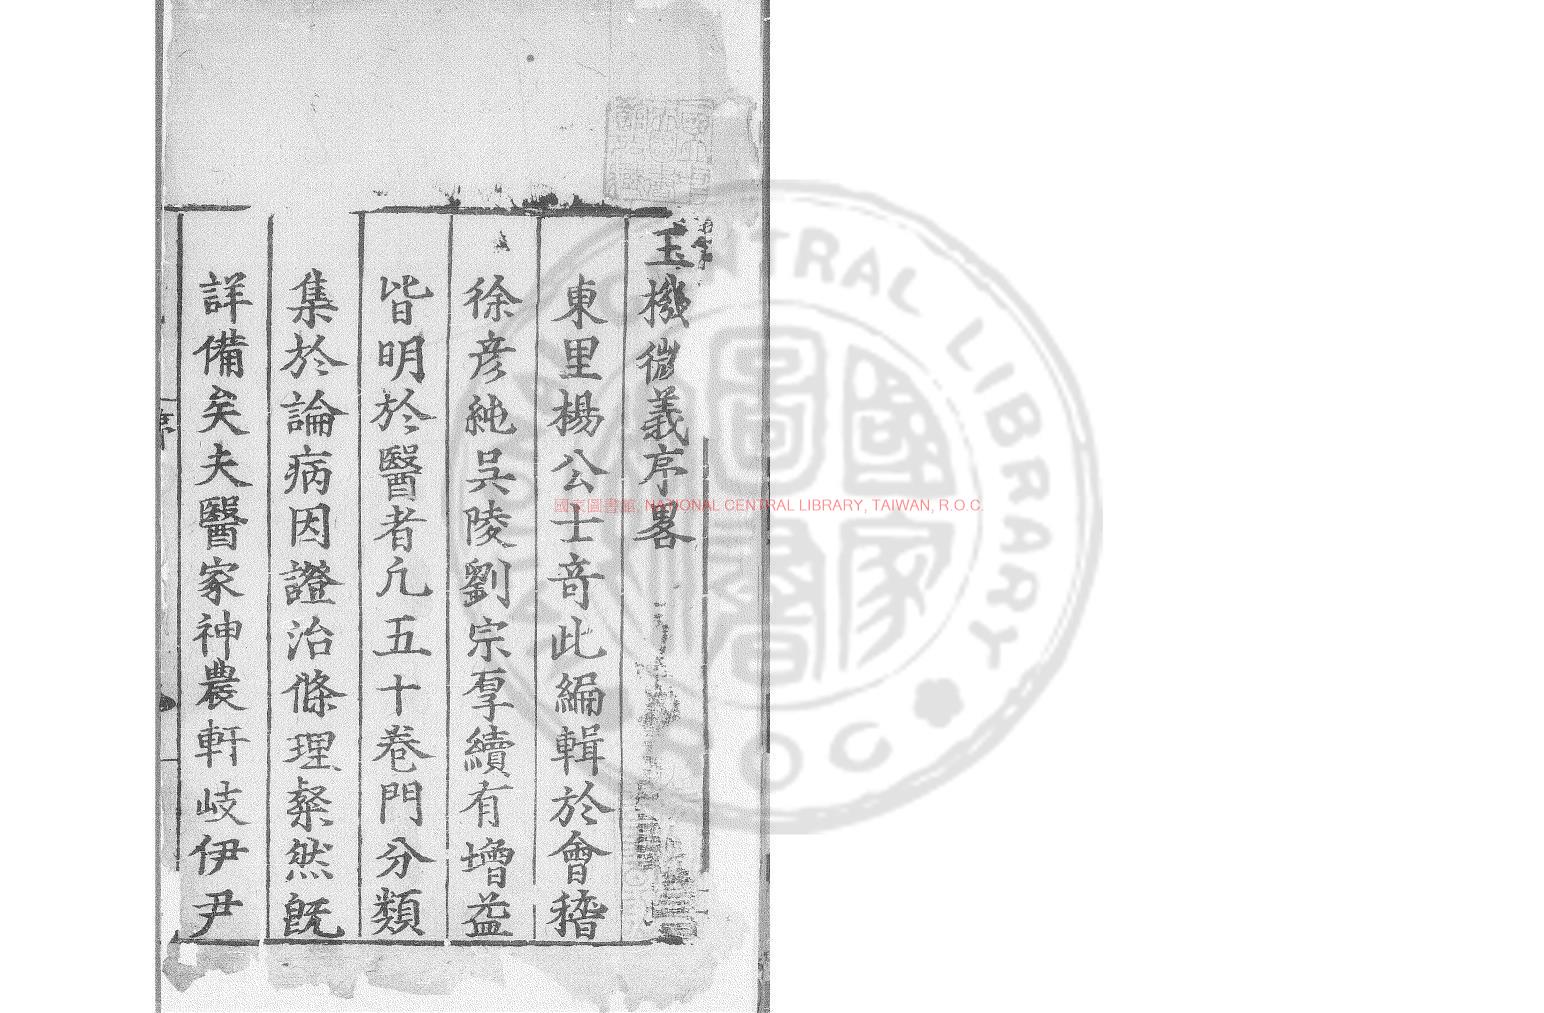 玉機微義序畧
東里楊公士奇此編輯於會稽
徐彦純吳陵劉宗厚續有增益
皆明於醫者凡五十卷門分類
集於論病因證治條理粲然旣
詳備矣夫醫家神農軒岐伊尹
序
國家圖書館, NATIONAL CENTRAL LIBRARY, TAIWAN, R.O.C.
CENTRAL LIBRARY
ROC
國家圖書